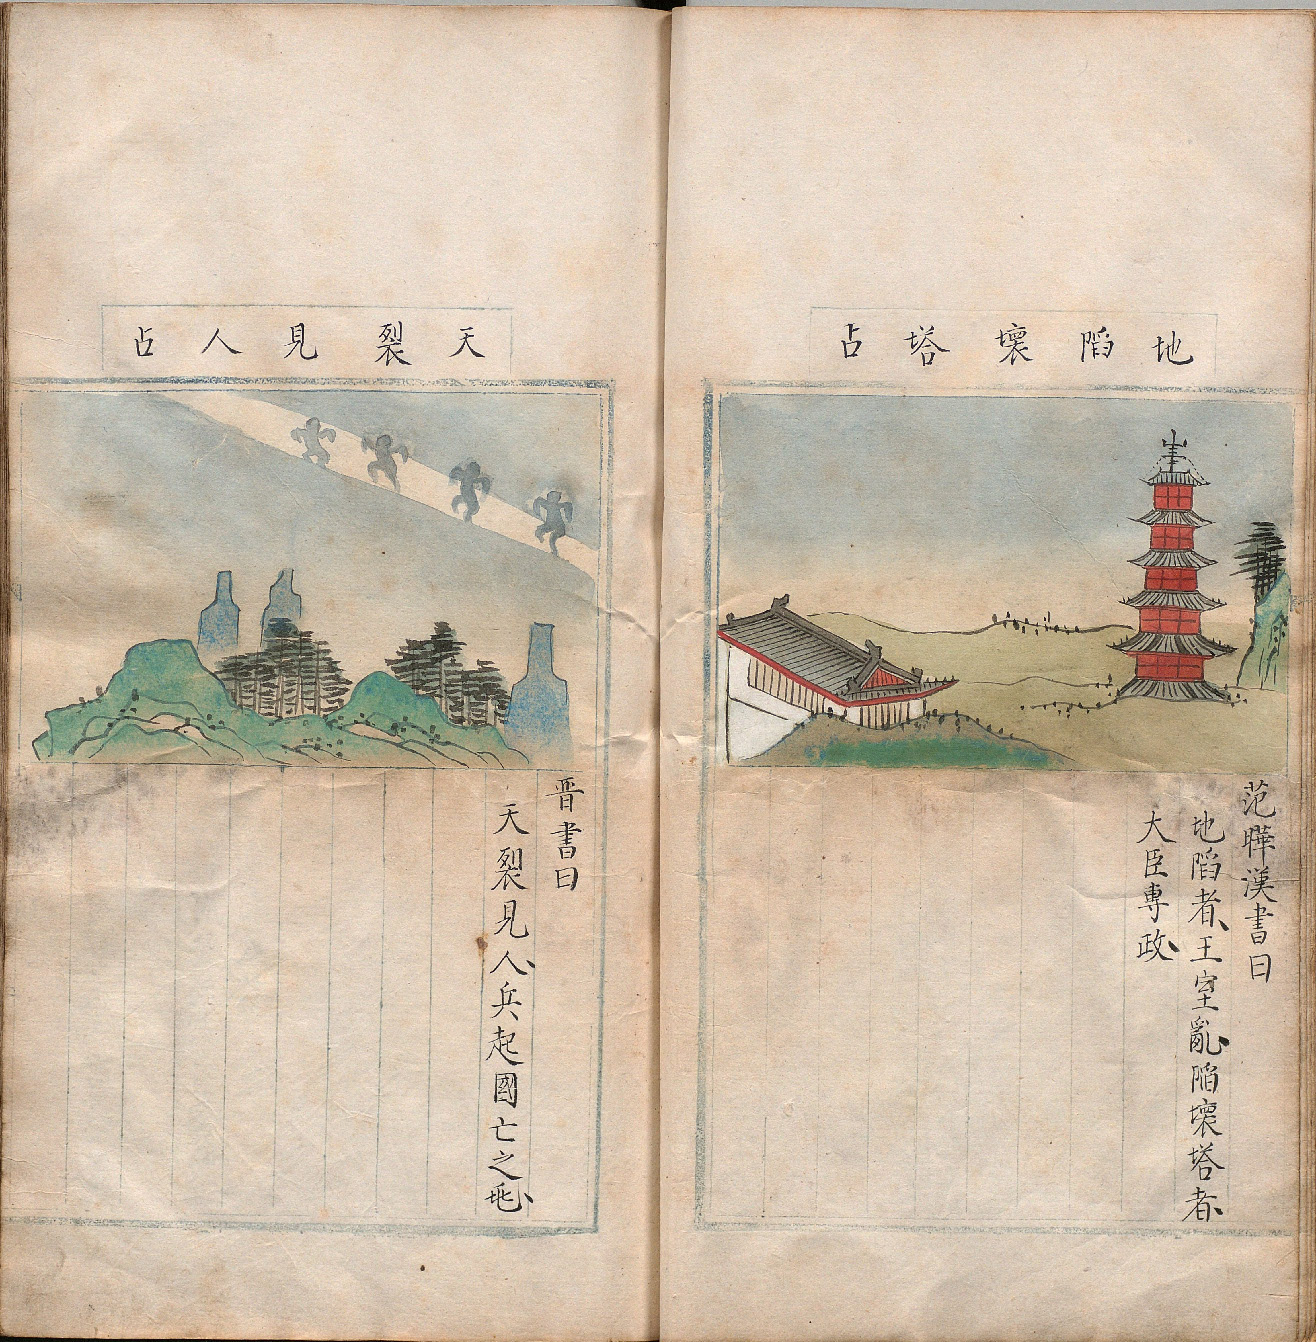 地陷壞塔占
范曄漢書曰
地陷者、王室亂、陷壞塔者、
大臣專政、
天裂見人占
晋書曰
天裂見人、兵起國亡之兆、